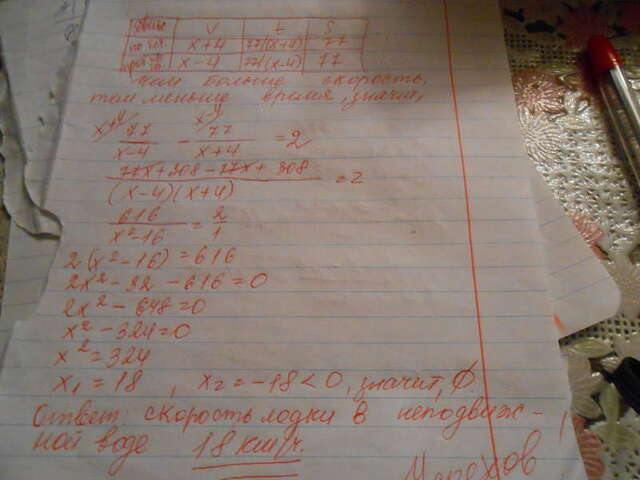 V t S
по теч. x+4 77/(x+4) 77
пр. т. x-4 77/(x-4) 77
чем больше скорость,
тем меньше время, значит,
x+4 77 / x-4 - x-4 77 / x+4 = 2
77x+308-77x+308 / (x-4)(x+4) = 2
616 / x²-16 = 2 / 1
2(x²-16)=616
2x²-32-616=0
2x²-648=0
x²-324=0
x²=324
x₁=18, x₂=-18<0, значит, ∅.
Ответ: скорость лодки в неподвиж-
ной воде 18 км/ч.